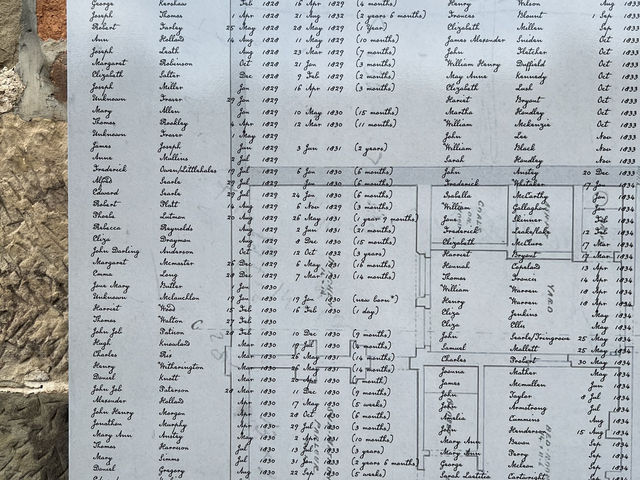 George Kershaw Feb 1828 16 Apr 1829 (4 months) Henry Wilson Aug 1833
Joseph Thomas 1 Apr 1828 21 Aug 1832 (2 years 6 months) Frances Blount 1 Sep 1833
Robert Farley 25 May 1828 28 May 1829 (1 year) Elizabeth Millen Sep 1833
Ann Holland 14 Aug 1828 11 May 1829 (10 months) James Alexander Sniden Oct 1833
Joseph Leath Aug 1828 23 Mar 1829 (7 months) John Fletcher Oct 1833
Margaret Robinson Oct 1828 21 Jan 1829 (3 months) William Henry Duffield Oct 1833
Elizabeth Salter Dec 1828 9 Feb 1829 (2 months) May Anne Kennedy Oct 1833
Joseph Miller Jan 1829 16 Apr 1829 (3 months) Elizabeth Lush Oct 1833
Unknown Fraser 29 Jan 1829 Harriet Bryant Oct 1833
Mary Allen Jan 1829 10 May 1830 (15 months) Martha Handley Oct 1833
Thomas Rookley 4 Apr 1829 12 Mar 1830 (11 months) William McKenzie Oct 1833
Unknown Fraser 1 May 1829 John Lee Nov 1833
James Joseph Jun 1829 3 Jun 1831 (2 years) William Black Nov 1833
Anne Mullins 2 Jul 1829 Sarah Handley Nov 1833
Frederick Owen/Littlehales 19 Jul 1829 6 Jan 1830 (6 months) John Anstey 20 Dec 1833
Alfred Searle 29 Jul 1829 Jan 1830 (6 months) Frederick Whitaker 17 Jan 1834
Edward Searle 29 Jul 1829 24 Jan 1830 (6 months) Isabella McCarthy Jan 1834
Robert Platt 4 Aug 1829 6 Nov 1829 (3 months) William Gallagher Jan 1834
Phoebe Latman 20 Aug 1829 26 May 1831 (1 year 9 months) Jane Skinner Feb 1834
Rebecca Reynolds Aug 1829 2 Jun 1831 (21 months) Frederick 12 Feb 1834
Eliza Drayman Sep 1829 8 Dec 1830 (15 months) Elizabeth McClure 17 Mar 1834
John Darling Anderson Oct 1829 12 Oct 1832 (3 years) Harriet Bryant 17 Mar 1834
Margaret Mcmaster 26 Dec 1829 6 May 1831 (16 months) Hannah Copeland 13 Apr 1834
Emma Long 28 Dec 1829 7 Mar 1831 (14 months) Thomas Francis 14 Apr 1834
Jane Mary Butler Jan 1830 William Warren 18 Apr 1834
Unknown Mclauchlon 19 Jan 1830 19 Jan 1830 (new born*) Henry Warren 18 Apr 1834
Harriet Wood 15 Feb 1830 16 Feb 1830 (1 day) Eliza Jenkins May 1834
Thomas Walton 27 Feb 1830 Eliza Ellis May 1834
John Job Patison 28 Feb 1830 10 Dec 1830 (9 months) John Searle/Tringrove 25 May 1834
Hugh Knowland Mar 1830 19 Jul 1830 (4 months) Samuel Mallett 25 May 1834
Charles Rix Mar 1830 26 May 1831 (14 months) Charles Probert 30 May 1834
Henry Witherington Mar 1830 26 May 1831 (14 months) Joanna Mather May 1834
Daniel Knott Mar 1830 20 Apr 1830 James Mcmullen Jun 1834
John Job Paterson 28 Mar 1830 11 Dec 1830 (9 months) John Taylor 8 Jul 1834
Alexander Holland Apr 1830 17 May 1830 (6 weeks) John Armstrong Jul 1834
John Henry Morgan Apr 1830 28 Oct 1830 (6 months) Amelia Cummens Aug 1834
Jonathan Murphy Apr 1830 29 Jul 1830 (3 months) John Henderson 15 Aug 1834
Mary Ann Anstey May 1830 2 Apr 1831 (10 months) Mary Ann Bevan Sep 1834
Thomas Harrison Jul 1830 13 Jul 1833 (3 years) Mary Ann Perry Sep 1834
Mary Simms Jul 1830 31 Jan 1833 (2 years 6 months) George Melson Sep 1834
Daniel Gregory Aug 1830 22 Sep 1830 (5 weeks) Sarah Laetitia Cartwright Sep 1834
YARD